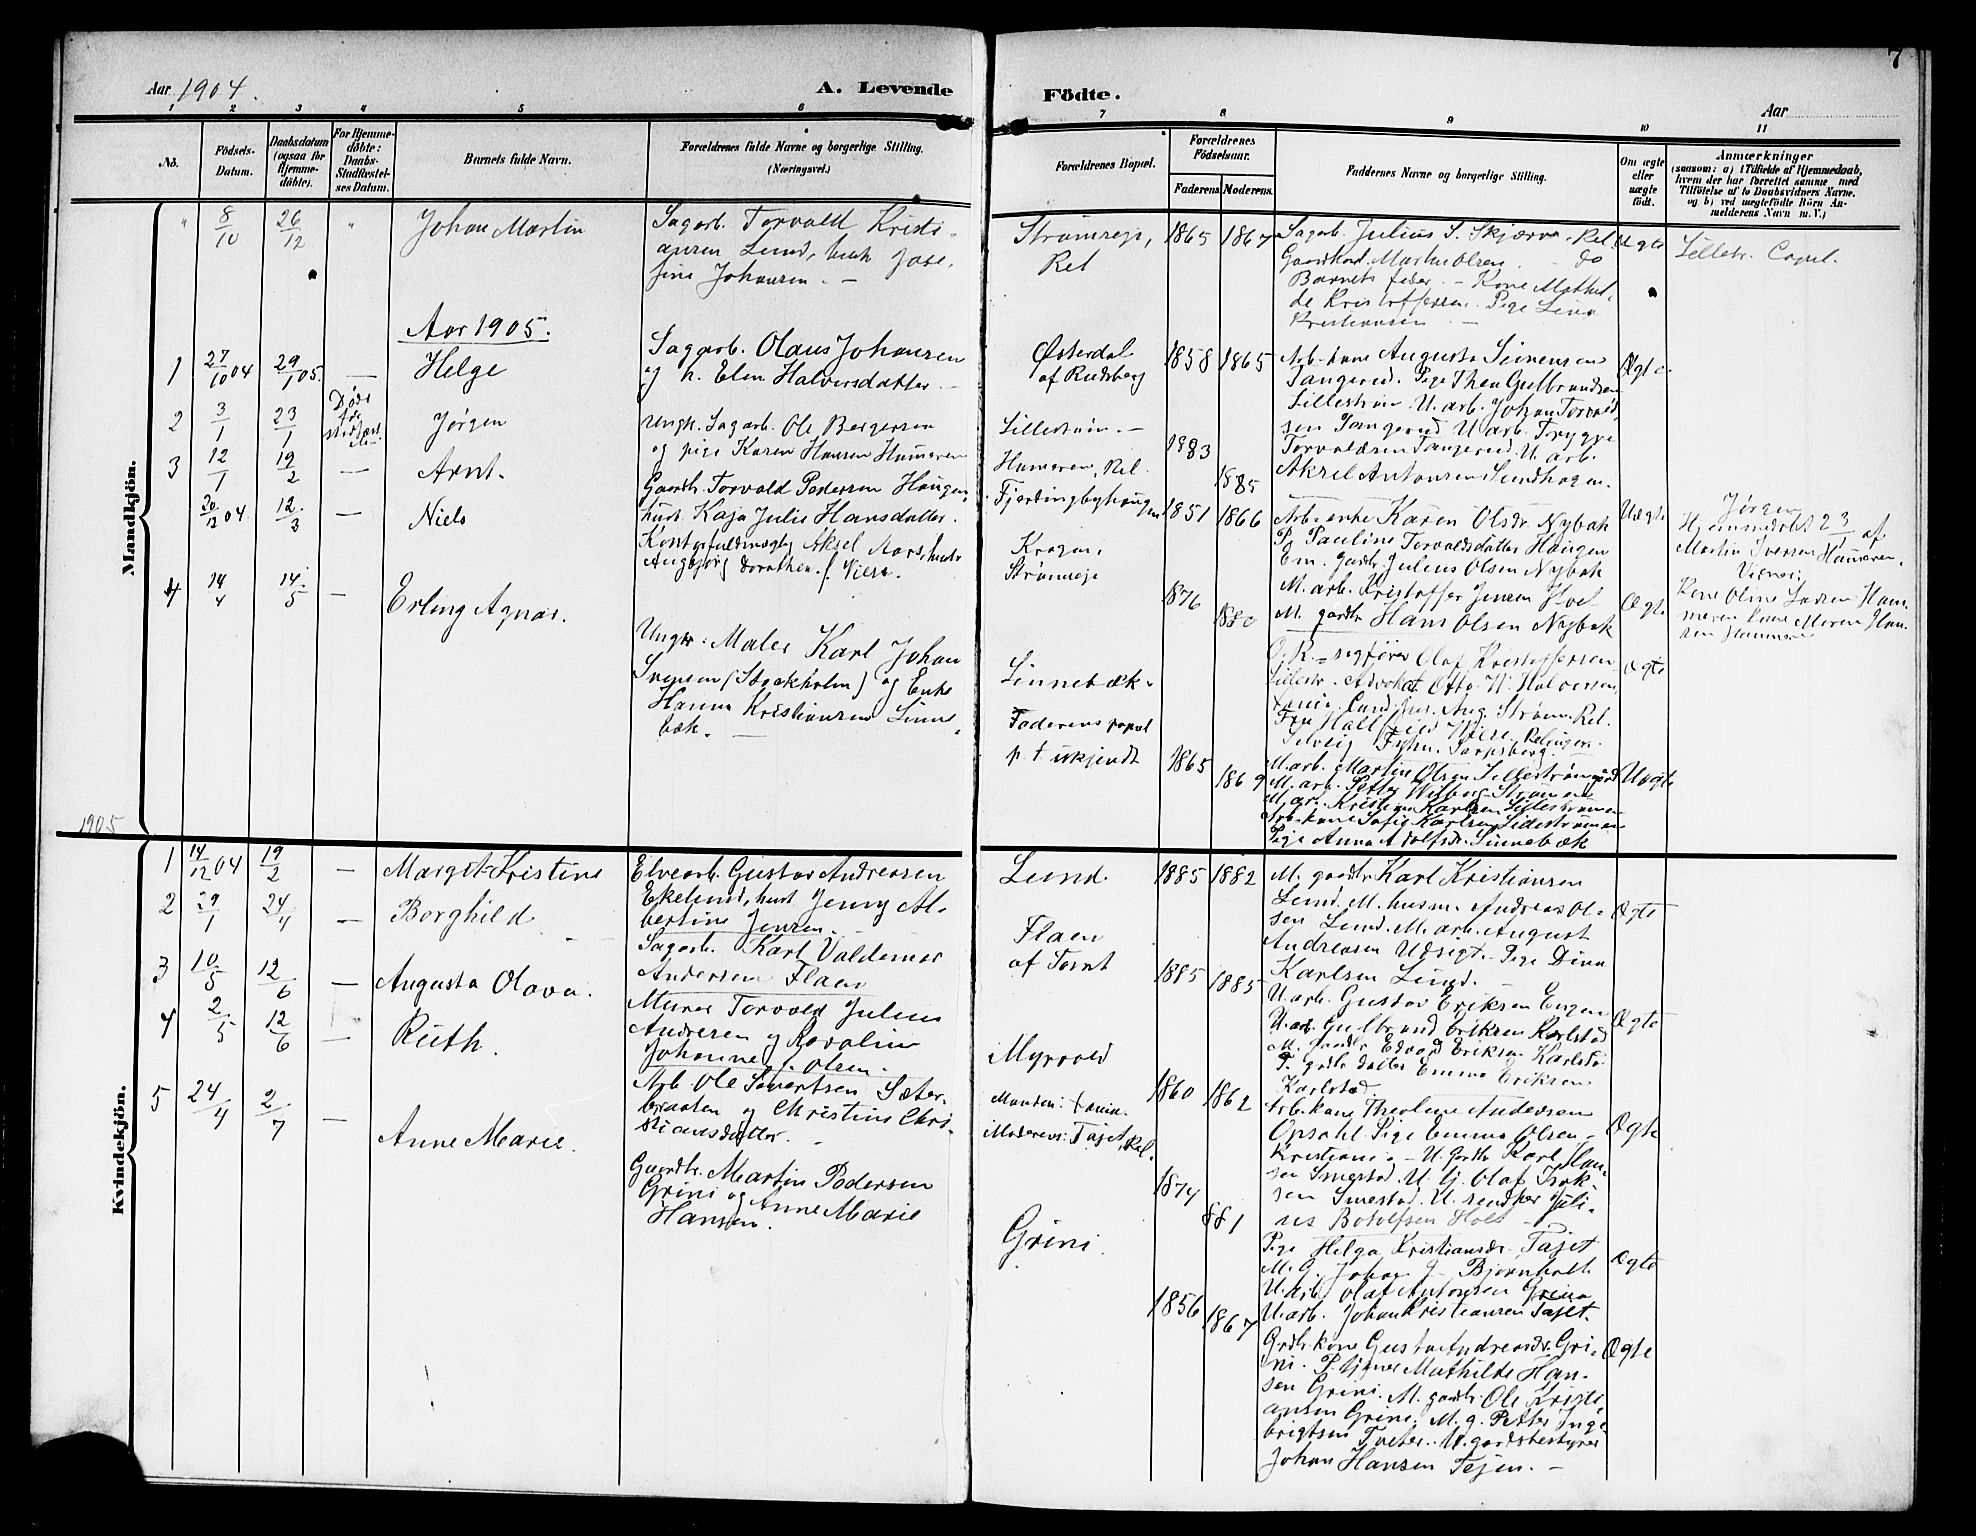 Aar 1904.
A. Levende
1 2 3 4 5 6
No.
Födsels-Datum.
Daabsdatum (ogsaa for Hjemme-döbte).
For Hjemme-döbte: Daabs-Stadfæstel-ses Datum.
Barnets fulde Navn.
Forældrenes fulde Navne og borgerlige Stilling. (Næringsvei.)
Födte.
Aar
7
7 8 9 10 11
Forældrenes Bopæl.
Forældrenes Födselsaar.
Faderens. Moderens.
Faddernes Navne og borgerlige Stilling.
Om ægte eller uægte födt.
Anmærkninger
(saasom: a) i Tilfælde af Hjemmedaab,
hvem der har forrettet samme med
Tilföielse af to Daabsvidners Navne,
og b) ved uægtefödte Börn An-
melderens Navn m. V.)
Mandkjön.
" 8/10 26/12 " Johan Martin
Sagarb. Torvald Kristi-
ansen Lund, hust. Jose-
fine Johansen. -
Strømveje,
Rel
1865 1867
Sagarb. Julius S. Skjærva Rel
Gaardmd. Martin Olsen do
Barnets fader. - Kone Mathil-
de Kristoffersen. Pige Lina
Kristiansen -
Uægte
Lillestr. Capel.
Aar 1905.
1 27/10 04 29/1 05. - Helge
Sagarb. Olaus Johansen
og h. Elen Halversdatter. -
Østerdal
af Rudsberg
1858 1865
Arb. kone Augusta Simensen
Tangerud. Pige Thea Gulbrandsen
Lillestrøm. U. arb. Johan Torvald-
sen Tangerud U. arb. Trygve
Torvaldsen Tangerud. U. arb.
Aksel Antonsen Sundhagen.
Ægte
2 3/1 23/1 Døde før stadfæst-elsen Jørgen
3 12/1 19/2 - Arnt.
Ungk. Sagarb. Ole Bergersen
og pige Karen Hansen Hameren
Lillestrøm. -
Hameren, Rel.
1883
1885
Gaardb. Torvald Pedersen Haugen,
hust. Kaja Julie Hansdatter.
Fjerdingbyhaugen
1851 1866
20/12 04 12/3 - Niels
Kontorfuldmægtig Aksel Aars, hustr.
Angbjørg Dorothea f. Wiese.
Krogen,
Strømveje
1876
1880
Arb. enke Karen Olsdr. Nybak
P. Pauline Torvaldsdatter Haugen
Em. gaardbr. Julius Olsen Nybak
M. arb. Kristoffer Jensen Hvel
M. gaardbr. Hans Olsen Nybak
Uægte
Ægte
Ægte
Jørgen
Hjemmedøbt 23/1 af
Martin Iversen Hameren.
Vidner:
Kone Oline Larsen Ham-
meren Kone Maren Han-
sen Hammeren
4 14/4 14/5 - Erling Agnar.
Ungkr. Maler Karl Johan
Svensen (Stockholm) og Enke
Hanna Kristiansen Linne-
bæk. -
Linnebæk.
Faderens bopæl
p. t. ukjendt
1865
1869
O. R. sagfører Olaf Kristoffersen
Lillestr. Advokat Otto H. Halvorsen
Xania. Cand. jur. Aug. Strøm. Rel.
Fru Wiese, Relingen.
Solveig Fyhn. Sarpsborg.
M. arb. Martin Olsen Lillestrømgaard
M. arb. Petter Wiborg Strømmen
M. arb. Kristian Karlsen Lillestrømmen
Arb. kone Sofie Karlsen Lillestrømmen
Pige Anna Adolfsdr. Linnebæk
Uægte
1905
Kvindekjön.
1 14/12 04 19/2 - Margit Kristine
Elvearb. Gustav Andreasen
Ekelund, hust. Jenny Al-
bertine Jensen.
Lund.
1885 1882
M. gaardbr. Karl Kristiansen
Lund. M. husm. Andreas Ol-
sen Lund. M. arb. August
Andreasen Udsigt. Pige Dina
Karlsen Lund.
Ægte
2 29/1 24/4 - Borghild
Sagarb. Karl Valdemar
Andersen Flaen
Flaen
af Tomt
1885 1885
U. arb. Gustav Eriksen Engen
U. arb. Gulbrand Eriksen Karlstad
M. gaardbr. Edvard Eriksen Karlsta
P. gardb. datter Emma Eriksen
Karlstad.
Ægte
3 10/5 12/6 - Augusta Olava.
Murer Torvald Julius
Andresen og Rovaline
Johanne f. Olsen.
Myrvold
1860 1862
Arb. kone Theoline Andersen
Opsahl. Pige Emma Olsen -
Kristiania - U. gardbr. Karl Han-
sen Smestad. U. Gj. Olaf Isak-
sen Smestad. U. snedker Juli-
us Botolfsen Holt -
Ægte
4 2/5 12/6 - Ruth.
Arb. Ole Sivertsen Sæter-
braaten og Christine Chri-
stiansdatter. -
Manden: Xania.
Moderens: Tajet, Rel.
1874
881
Pige Helga Kristiansdr. Tajet
M. G. Johan G. Bjørnholt
U. arb. Olaf Antonsen Grina
U. arb. Johan Kristiansen Tajet.
Ægte
5 24/4 2/7 - Anne Marie.
Gaardbr. Martin Pedersen
Grini og Anne Marie
Hansen.
Grini.
1856
1867
Grdbr. kone Gusta Andreasdr. Gri-
ni. P. tjener Mathilde Han-
sen Grini. M. gaardbr. Ole Kristi-
ansen Grini. M. g. Petter Inge-
brigtsen Tveter. U. gardsbestyrer
Johan Hansen Tejen. -
Ægte